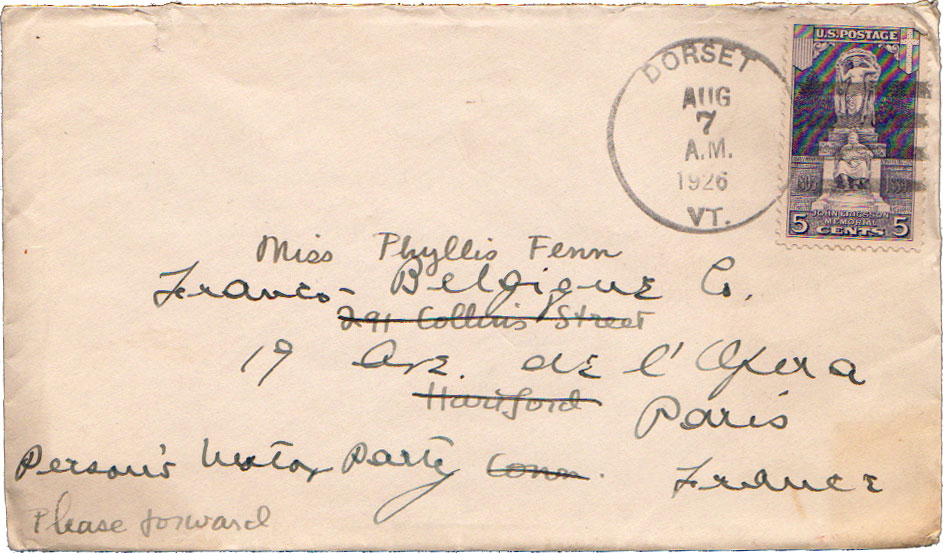 DORSET
AUG
7
A.M.
1926
VT.
U.S. POSTAGE
JOHN ERICSSON
MEMORIAL
5 CENTS 5
Miss Phyllis Fenn
Franco-Belgique Co.
291 Collins Street
19 Ave. de l'Opera
Hartford
Paris
Person's Motor Party Conn.
France
Please forward